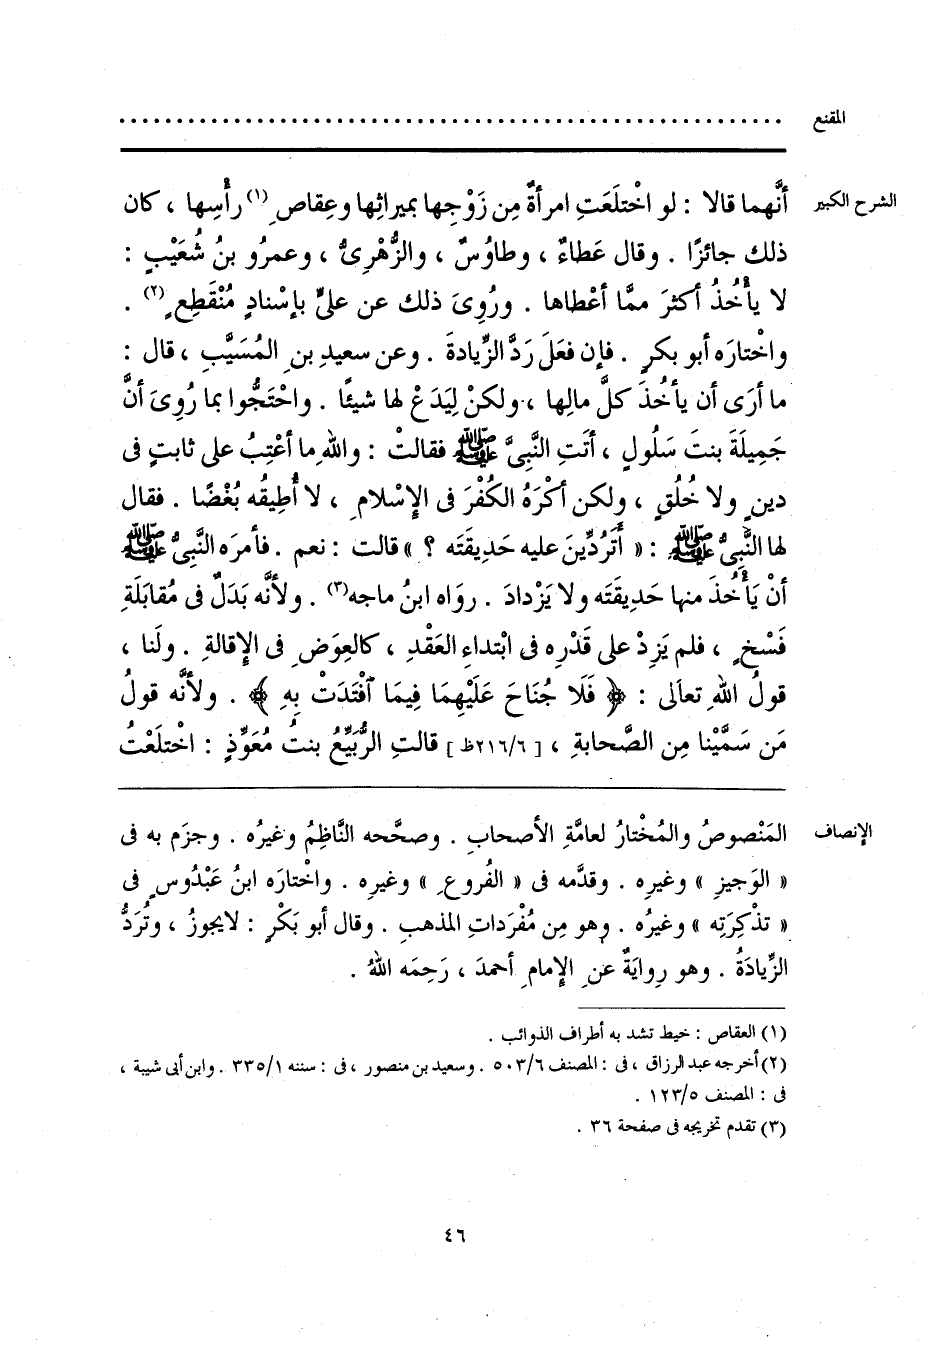 المقنع ..........................................................
الشرح الكبير أنَّهما قالا : لو اخْتلَعَتِ امرأةٌ مِن زَوْجِها بميراثِها وعِقاصِ(١) رأْسِها ، كان
ذلك جائزًا . وقال عَطاءٌ ، وطاوُسٌ ، والزُّهْرِىُّ ، وعمرُو بنُ شُعَيْبٍ :
لا يأْخُذُ أكثرَ ممَّا أعْطاها . ورُوِىَ ذلك عن علىٍّ بإسْنادٍ مُنْقَطِعٍ(٢) .
واخْتارَه أبو بكرٍ . فإن فعَلَ رَدَّ الزِّيادةَ . وعن سعيدِ بنِ المُسَيَّبِ ، قال :
ما أرَى أن يأْخُذَ كلَّ مالِها ، ولكنْ لِيَدَعْ لها شيئًا . واحْتَجُّوا بما رُوِىَ أنَّ
جَمِيلَةَ بنتَ سَلُولٍ ، أتَتِ النَّبِىَّ ﷺ فقالتْ : واللهِ ما أعْتِبُ على ثابتٍ فى
دينٍ ولا خُلُقٍ ، ولكن أكْرَهُ الكُفْرَ فى الإِسْلامِ ، لا أُطِيقُه بُغْضًا . فقال
لها النَّبِىُّ ﷺ : « أَتَرُدِّينَ عليه حَدِيقَتَه ؟ » قالت : نعم . فأمرَه النَّبِىُّ ﷺ
أنْ يَأْخُذَ منها حَدِيقَتَه ولا يَزْدادَ . رواه ابنُ ماجه(٣) . ولأنَّه بَدَلٌ فى مُقابَلَةِ
فَسْخٍ ، فلم يَزِدْ على قَدْرِه فى ابْتداءِ العَقْدِ ، كالعِوَضِ فى الإِقالةِ . ولَنا ،
قولُ اللهِ تعالَى : ﴿ فَلَا جُنَاحَ عَلَيْهِمَا فِيمَا ٱفْتَدَتْ بِهِ ﴾ . ولأنَّه قولُ
مَن سَمَّيْنا مِن الصَّحابةِ ، [ ٢١٦/٦ظ ] قالتِ الرُّبَيِّعُ بنتُ مُعَوِّذٍ : اخْتلَعْتُ
الإنصاف المَنْصوصُ والمُخْتارُ لعامَّةِ الأصحابِ . وصحَّحه النَّاظِمُ وغيرُه . وجزَم به فى
« الوَجيزِ » وغيرِه . وقدَّمه فى « الفُروعِ » وغيرِه . واخْتارَه ابنُ عَبْدُوسٍ فى
« تذْكِرَتِه » وغيرُه . وهو مِن مُفْرَداتِ المذهبِ . وقال أبو بَكْرٍ : لا يجوزُ ، وتُرَدُّ
الزِّيادَةُ . وهو رِوايَةٌ عن الإِمامِ أحمدَ ، رَحِمَه اللهُ .
(١) العقاص : خيط تشد به أطراف الذوائب .
(٢) أخرجه عبد الرزاق ، فى : المصنف ٥٠٣/٦ . وسعيد بن منصور ، فى : سننه ٣٣٥/١ . وابن أبى شيبة ،
فى : المصنف ١٢٣/٥ .
(٣) تقدم تخريجه فى صفحة ٣٦ .
٤٦